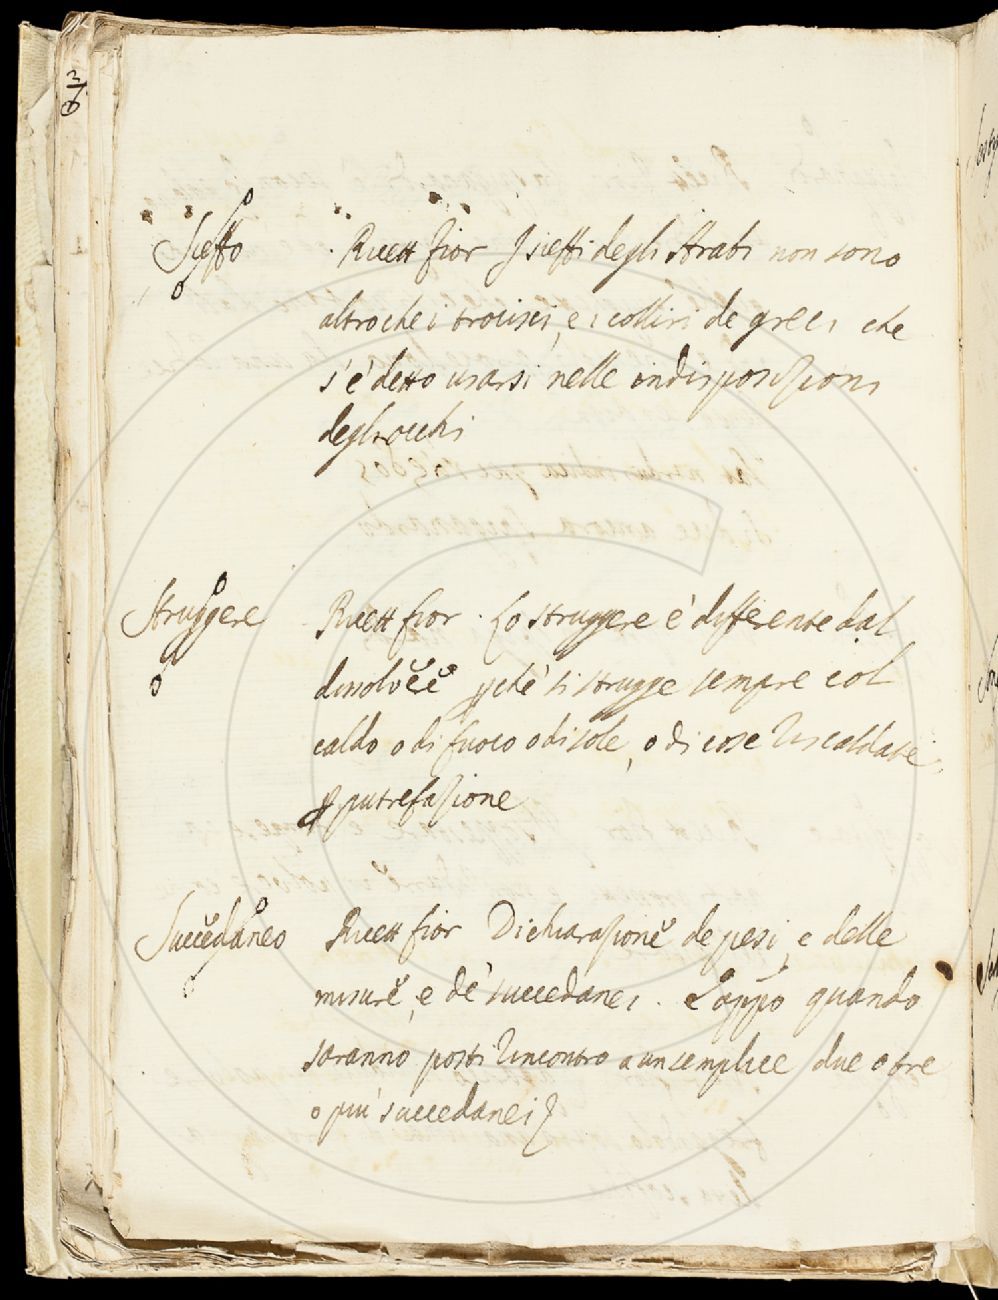 Sieffo
Ricett fior I sieffi degli Arabi non sono
altro che i trocisci, e i colliri de greci che
s'è detto usarsi nelle indisposizioni
degli occhi
Struggere
Ricett fior. Lo struggere è differente dal
dissolvĕĕ ꝑchè si strugge sempre col
caldo o di fuoco o di sole, o di cose riscaldate
ꝑ putrefazione
Succĕdaneo
Ricett fior Dichiarazionĕ de pesi, e delle
misurĕ, e dè succedanei. E appo quando
saranno posti rincontro a un semplice due o tre
o più succedanei